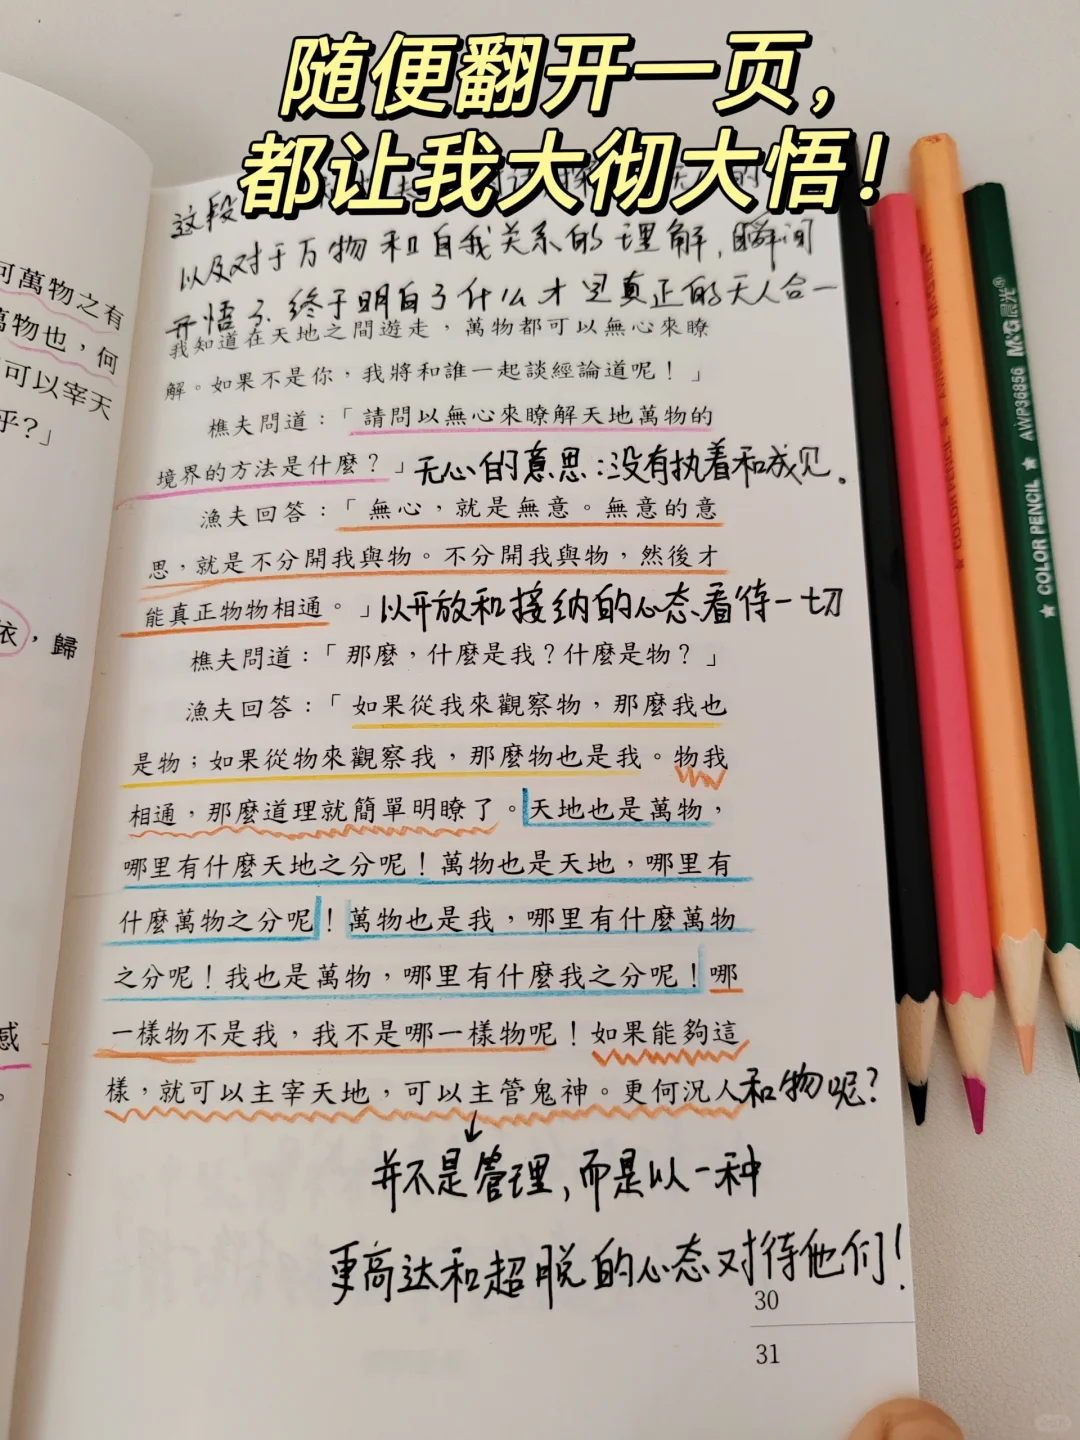 随便翻开一页，
都让我大彻大悟！
这段
以及对于万物和自我关系的理解，瞬间
开悟了.终于明白了什么才是真正的天人合一
我知道在天地之間遊走，萬物都可以無心來瞭
解。如果不是你，我將和誰一起談經論道呢！」
樵夫問道：「請問以無心來瞭解天地萬物的
境界的方法是什麼？」无心的意思：没有执着和成见.
漁夫回答：「無心，就是無意。無意的意
思，就是不分開我與物。不分開我與物，然後才
能真正物物相通。」以开放和接纳的心态看待一切
樵夫問道：「那麼，什麼是我？什麼是物？」
漁夫回答：「如果從我來觀察物，那麼我也
是物；如果從物來觀察我，那麼物也是我。物我
相通，那麼道理就簡單明瞭了。天地也是萬物，
哪里有什麼天地之分呢！萬物也是天地，哪里有
什麼萬物之分呢！萬物也是我，哪里有什麼萬物
之分呢！我也是萬物，哪里有什麼我之分呢！哪
一樣物不是我，我不是哪一樣物呢！如果能夠這
樣，就可以主宰天地，可以主管鬼神。更何況人和物呢？
并不是管理，而是以一种
更高达和超脱的心态对待他们！
30
31
何萬物之有
萬物也，何
可以宰天
乎？」
依，歸
感
。
M&G晨光®
AWP36856
★ COLOR PENCIL ★